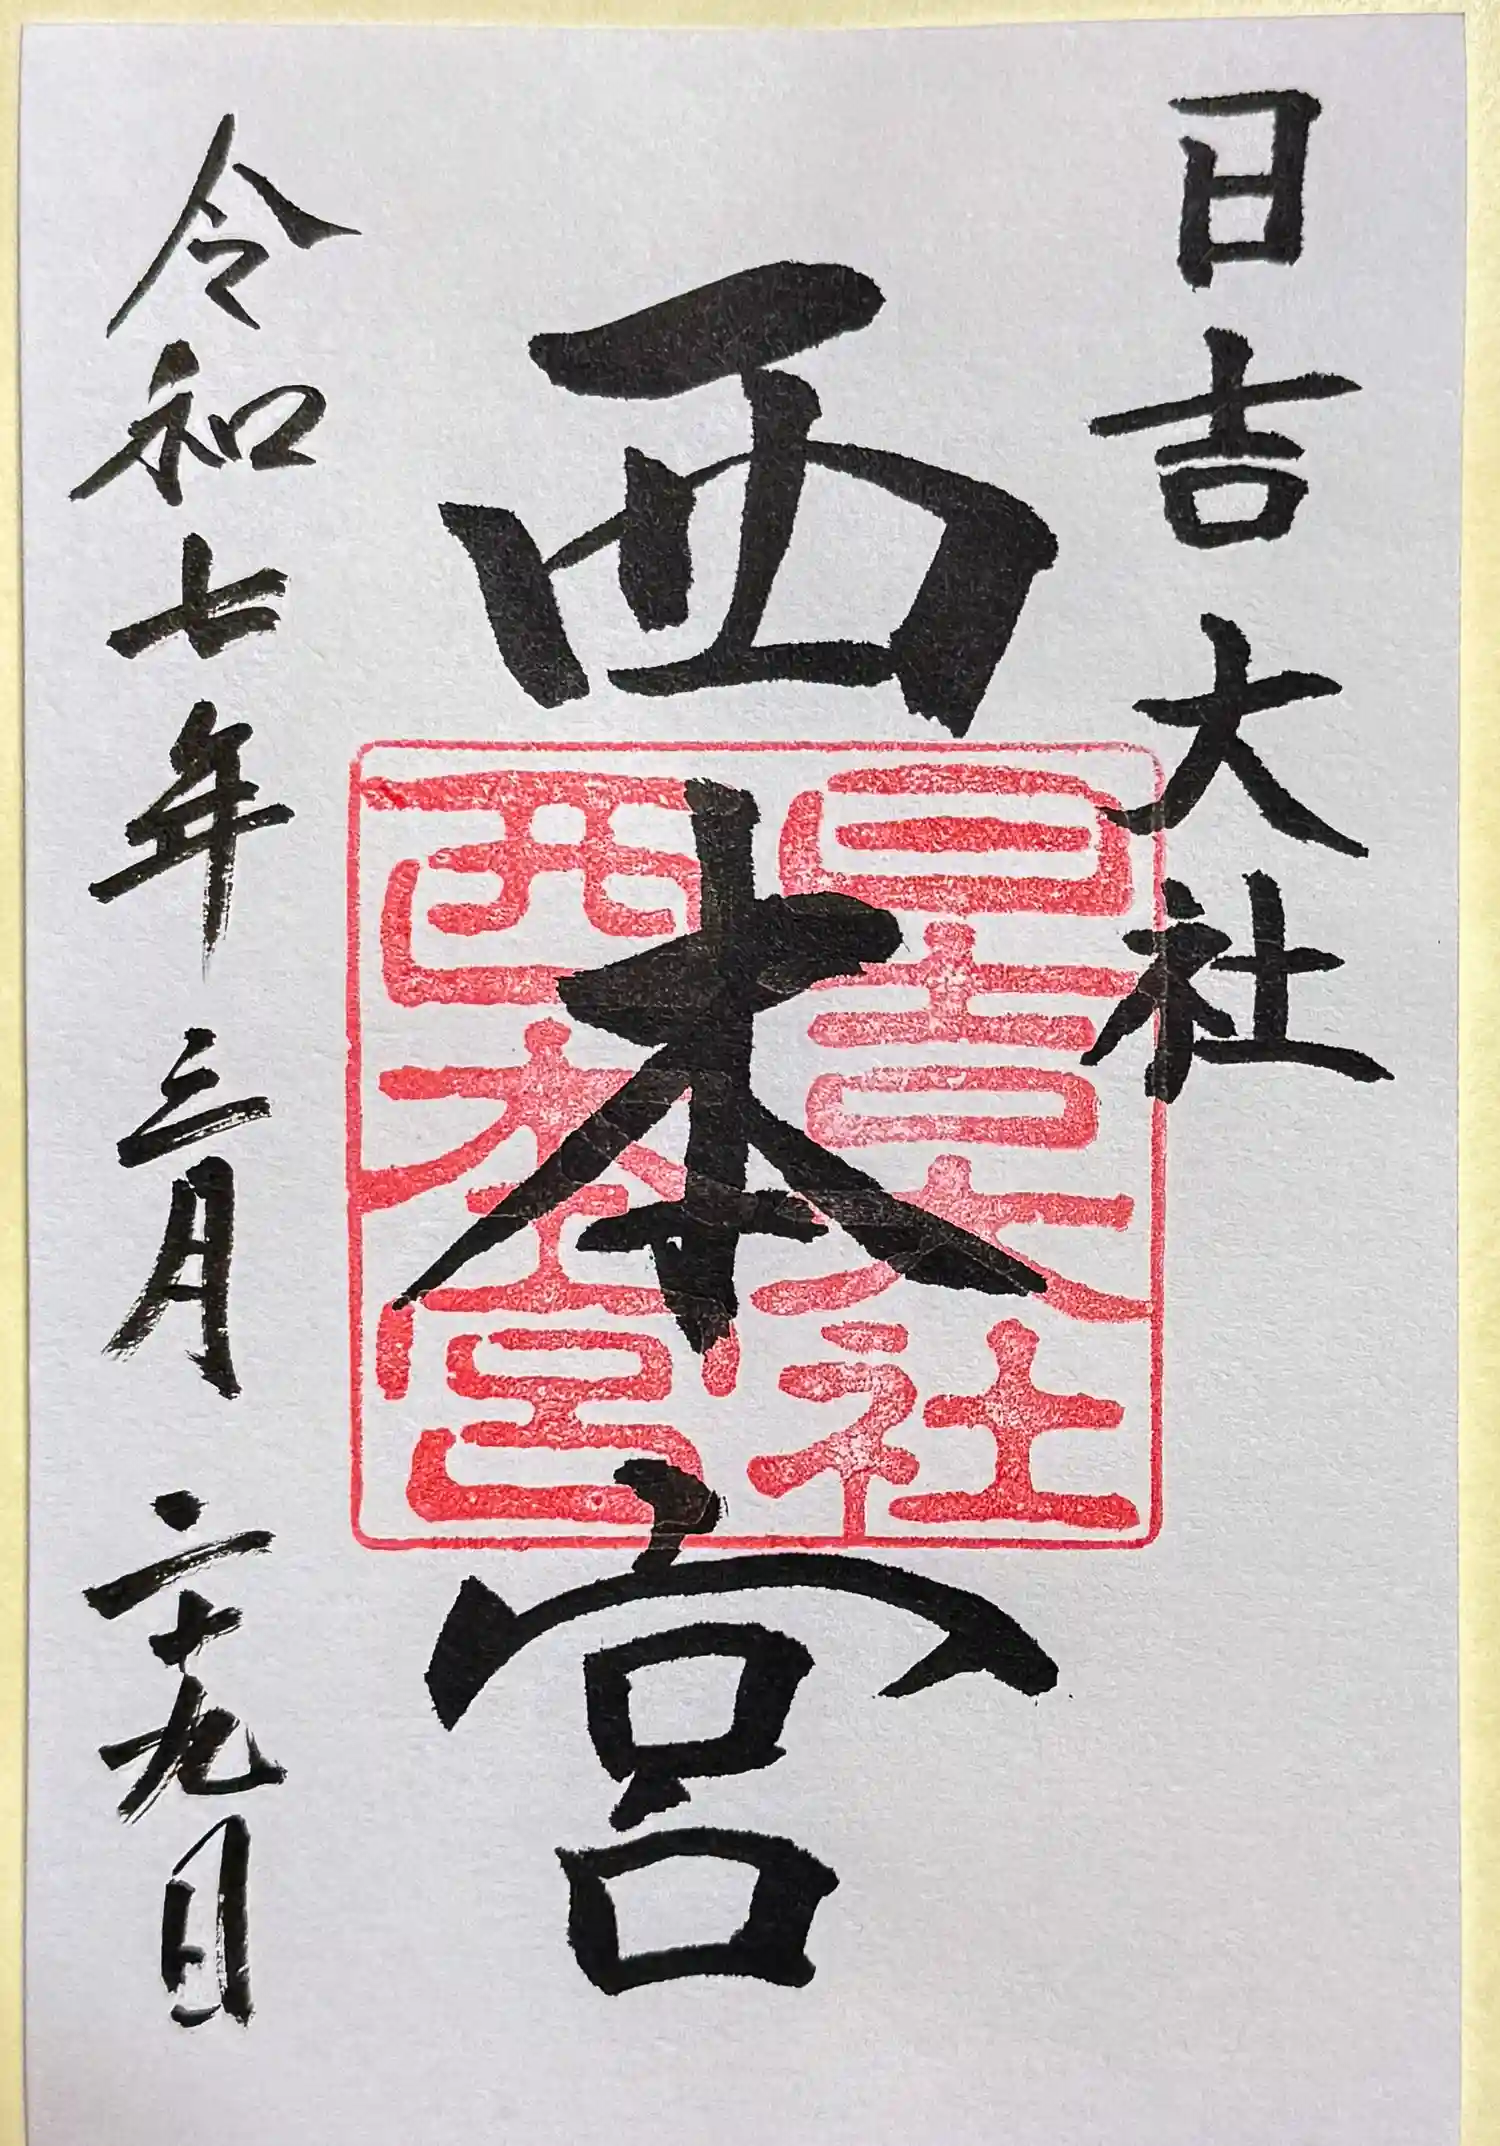 日吉大社
西本宮
日吉大社
西本宮
令和七年三月二十九日